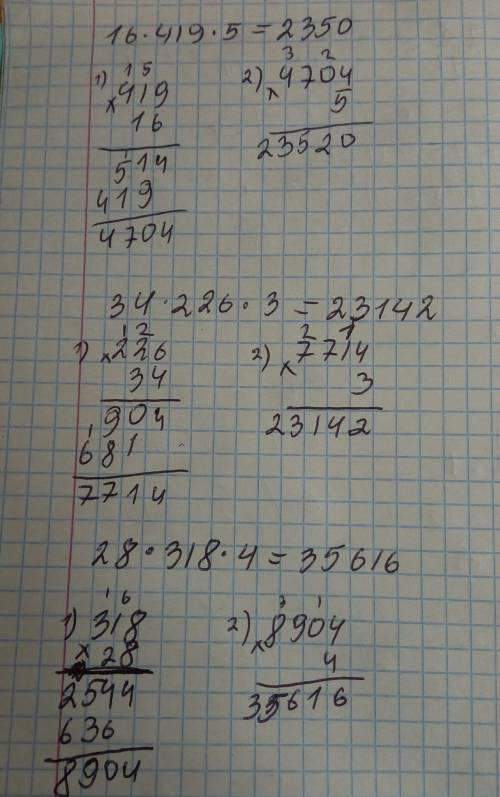 16·419·5=2350
1) 1 5
×419
16
514
419
4704
2) 3 2
×4704
5
23520
34·226·3=23142
1) 1 2
×226
34
904
681
7714
2) 2 1
×7714
3
23142
28·318·4=35616
1) 1 6
318
×28
2544
636
8904
2) 3 1
×8904
4
35616